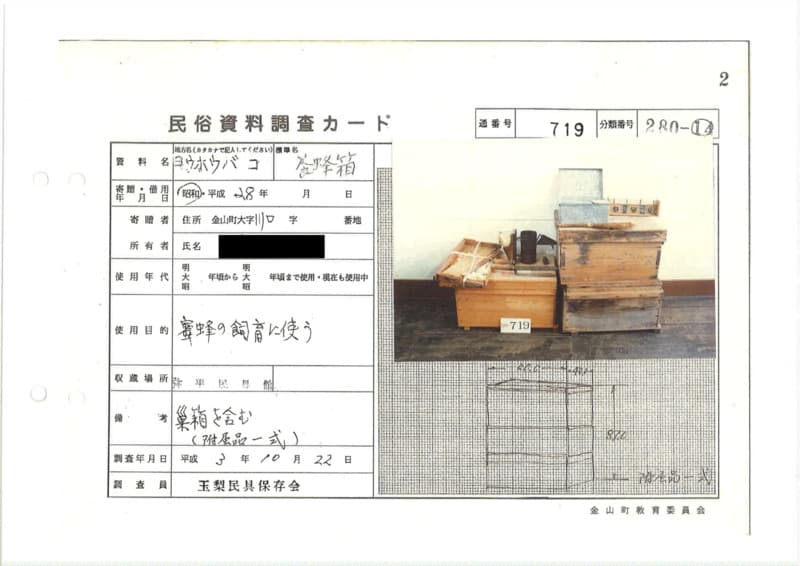 2
民俗資料調査カード
通番号 719 分類番号 280-14
資料名 地方名(カタカナで記入してください) ヨウホウバコ 標準名 養蜂箱
寄贈・借用年月日 昭和・平成 28年 月 日
寄贈者 住所 金山町大字川口 字 番地
所有者 氏名
使用年代 明大昭 年頃から 明大昭 年頃まで使用・現在も使用中
使用目的 蜜蜂の飼育に使う
収蔵場所
備考 巣箱を含む
(附属品一式)
調査年月日 平成 3年 10月 22日
調査員 玉梨民具保存会
719
附属品一式
金山町教育委員会